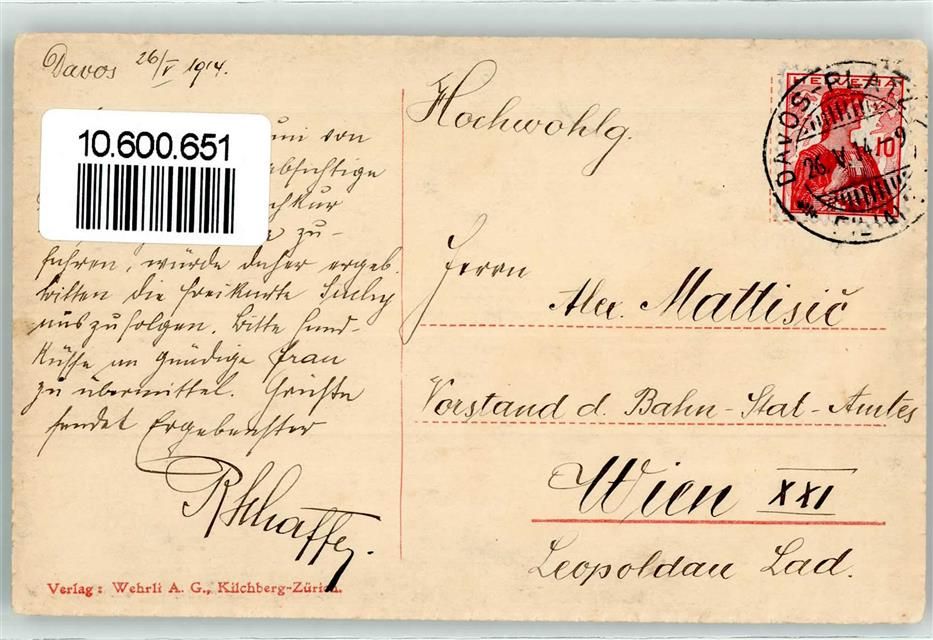 Davos 26/V 1914.
10.600.651
Juni von
absichtige
kur
zu-
führen, würde daher ergeb.
bitten die Freikarte
auszufolgen. Bitte Hand-
küsse an gnädige Frau
zu übermitteln. Grüße
sendet Ergebenster
Hochwohlg.
Herrn
Alex. Mattisič
Vorstand d. Bahn-Stat-Amtes
Wien XXI
Leopoldau Lad.
HELVETIA
10
DAVOS-PLATZ
26.V.14.-9
FILIALE
Verlag: Wehrli A. G., Kilchberg-Zürich.